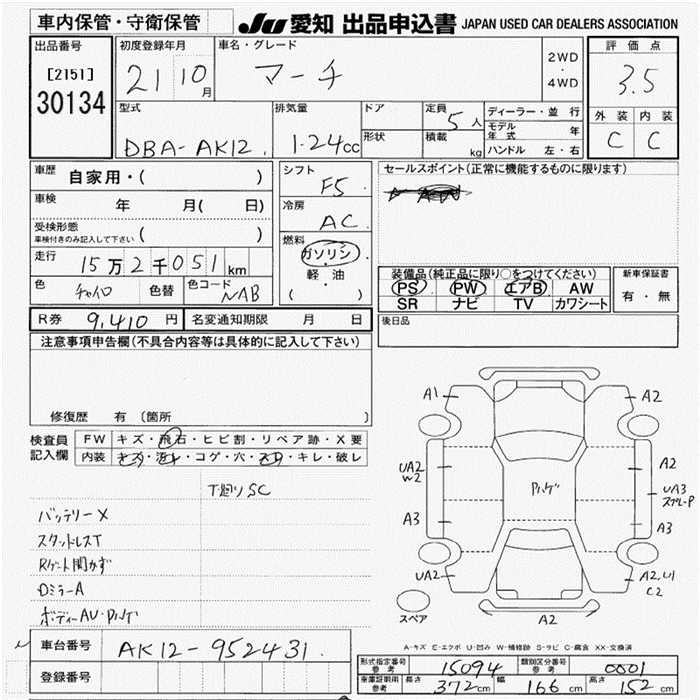 車内保管・守衛保管
JU 愛知 出品申込書 JAPAN USED CAR DEALERS ASSOCIATION
出品番号
[2151]
30134
初度登録年月
21 10 月
車名・グレード
マーチ
2WD
・
4WD
評価点
3.5
外装 内装
C C
型式
DBA-AK12
排気量
1.24cc
ドア
形状
定員
5人
積載
kg
ディーラー・並 行
モデル年式 年
ハンドル 左・右
車歴
自家用・( )
車検
年 月( 日)
受検形態
車検付きのみ記入して下さい ( )
走行
15万2千051km
色
チャイロ
色替
色コード
NAB
シフト
F5
冷房
AC
燃料
ガソリン
・
軽油
( )
セールスポイント(正常に機能するものに限ります)
装備品(純正品に限り○をつけてください)
PS PW エアB AW
SR ナビ TV カワシート
新車保証書
有・無
R券 9,410 円 名変通知期限 月 日
後日品
注意事項申告欄(不具合内容等は具体的に記入して下さい)
修復歴 有(箇所
検査員
記入欄
FW キズ・飛石・ヒビ割・リペア跡・X要
内装 キズ・汚れ・コゲ・穴・スレ・キレ・破レ
下廻りSC
バッテリーX
スタットレスT
Rゲート開かず
DミラーA
ボディーAU・Pハゲ
A1
A2
UA2
W2
A2
Pハゲ
UA3
スプレーP
A3
A3
UA2
A2,U1
C2
スペア
A2
A-キズ E-エクボ U-凹み W-補修跡 S-サビ C-腐食 XX-交換済
車台番号 AK12-952431
登録番号
形式指定番号 参考 15094 類別区分番号 参考 0001
車庫証明用 参考 長さ 372cm 幅 166cm 高さ 152cm